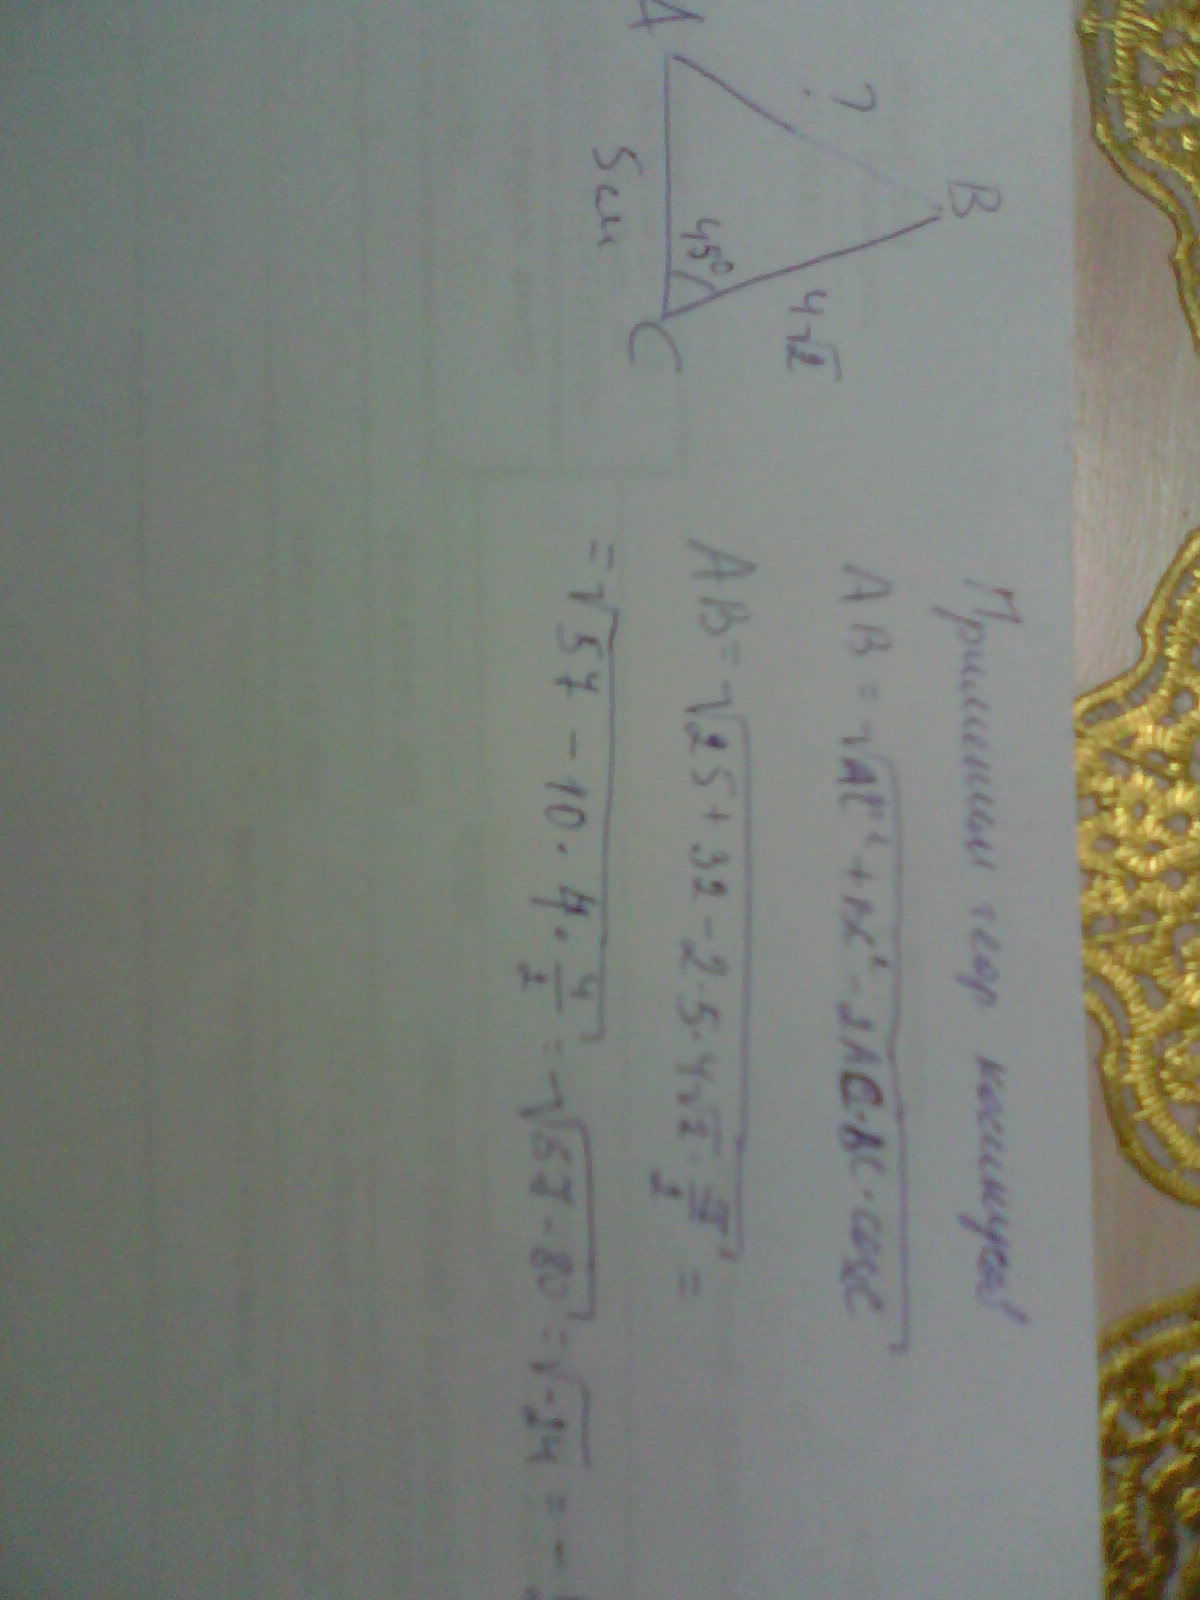 A
?
B
4√2
45°
5см
C
Применим теор косинусов
AB = √AC² + BC² - 2AC·BC·cosC
AB = √25 + 32 - 2·5·4√2·√2/2 =
= √57 - 10·4·4/2 = √57 - 80 = √-24 = -